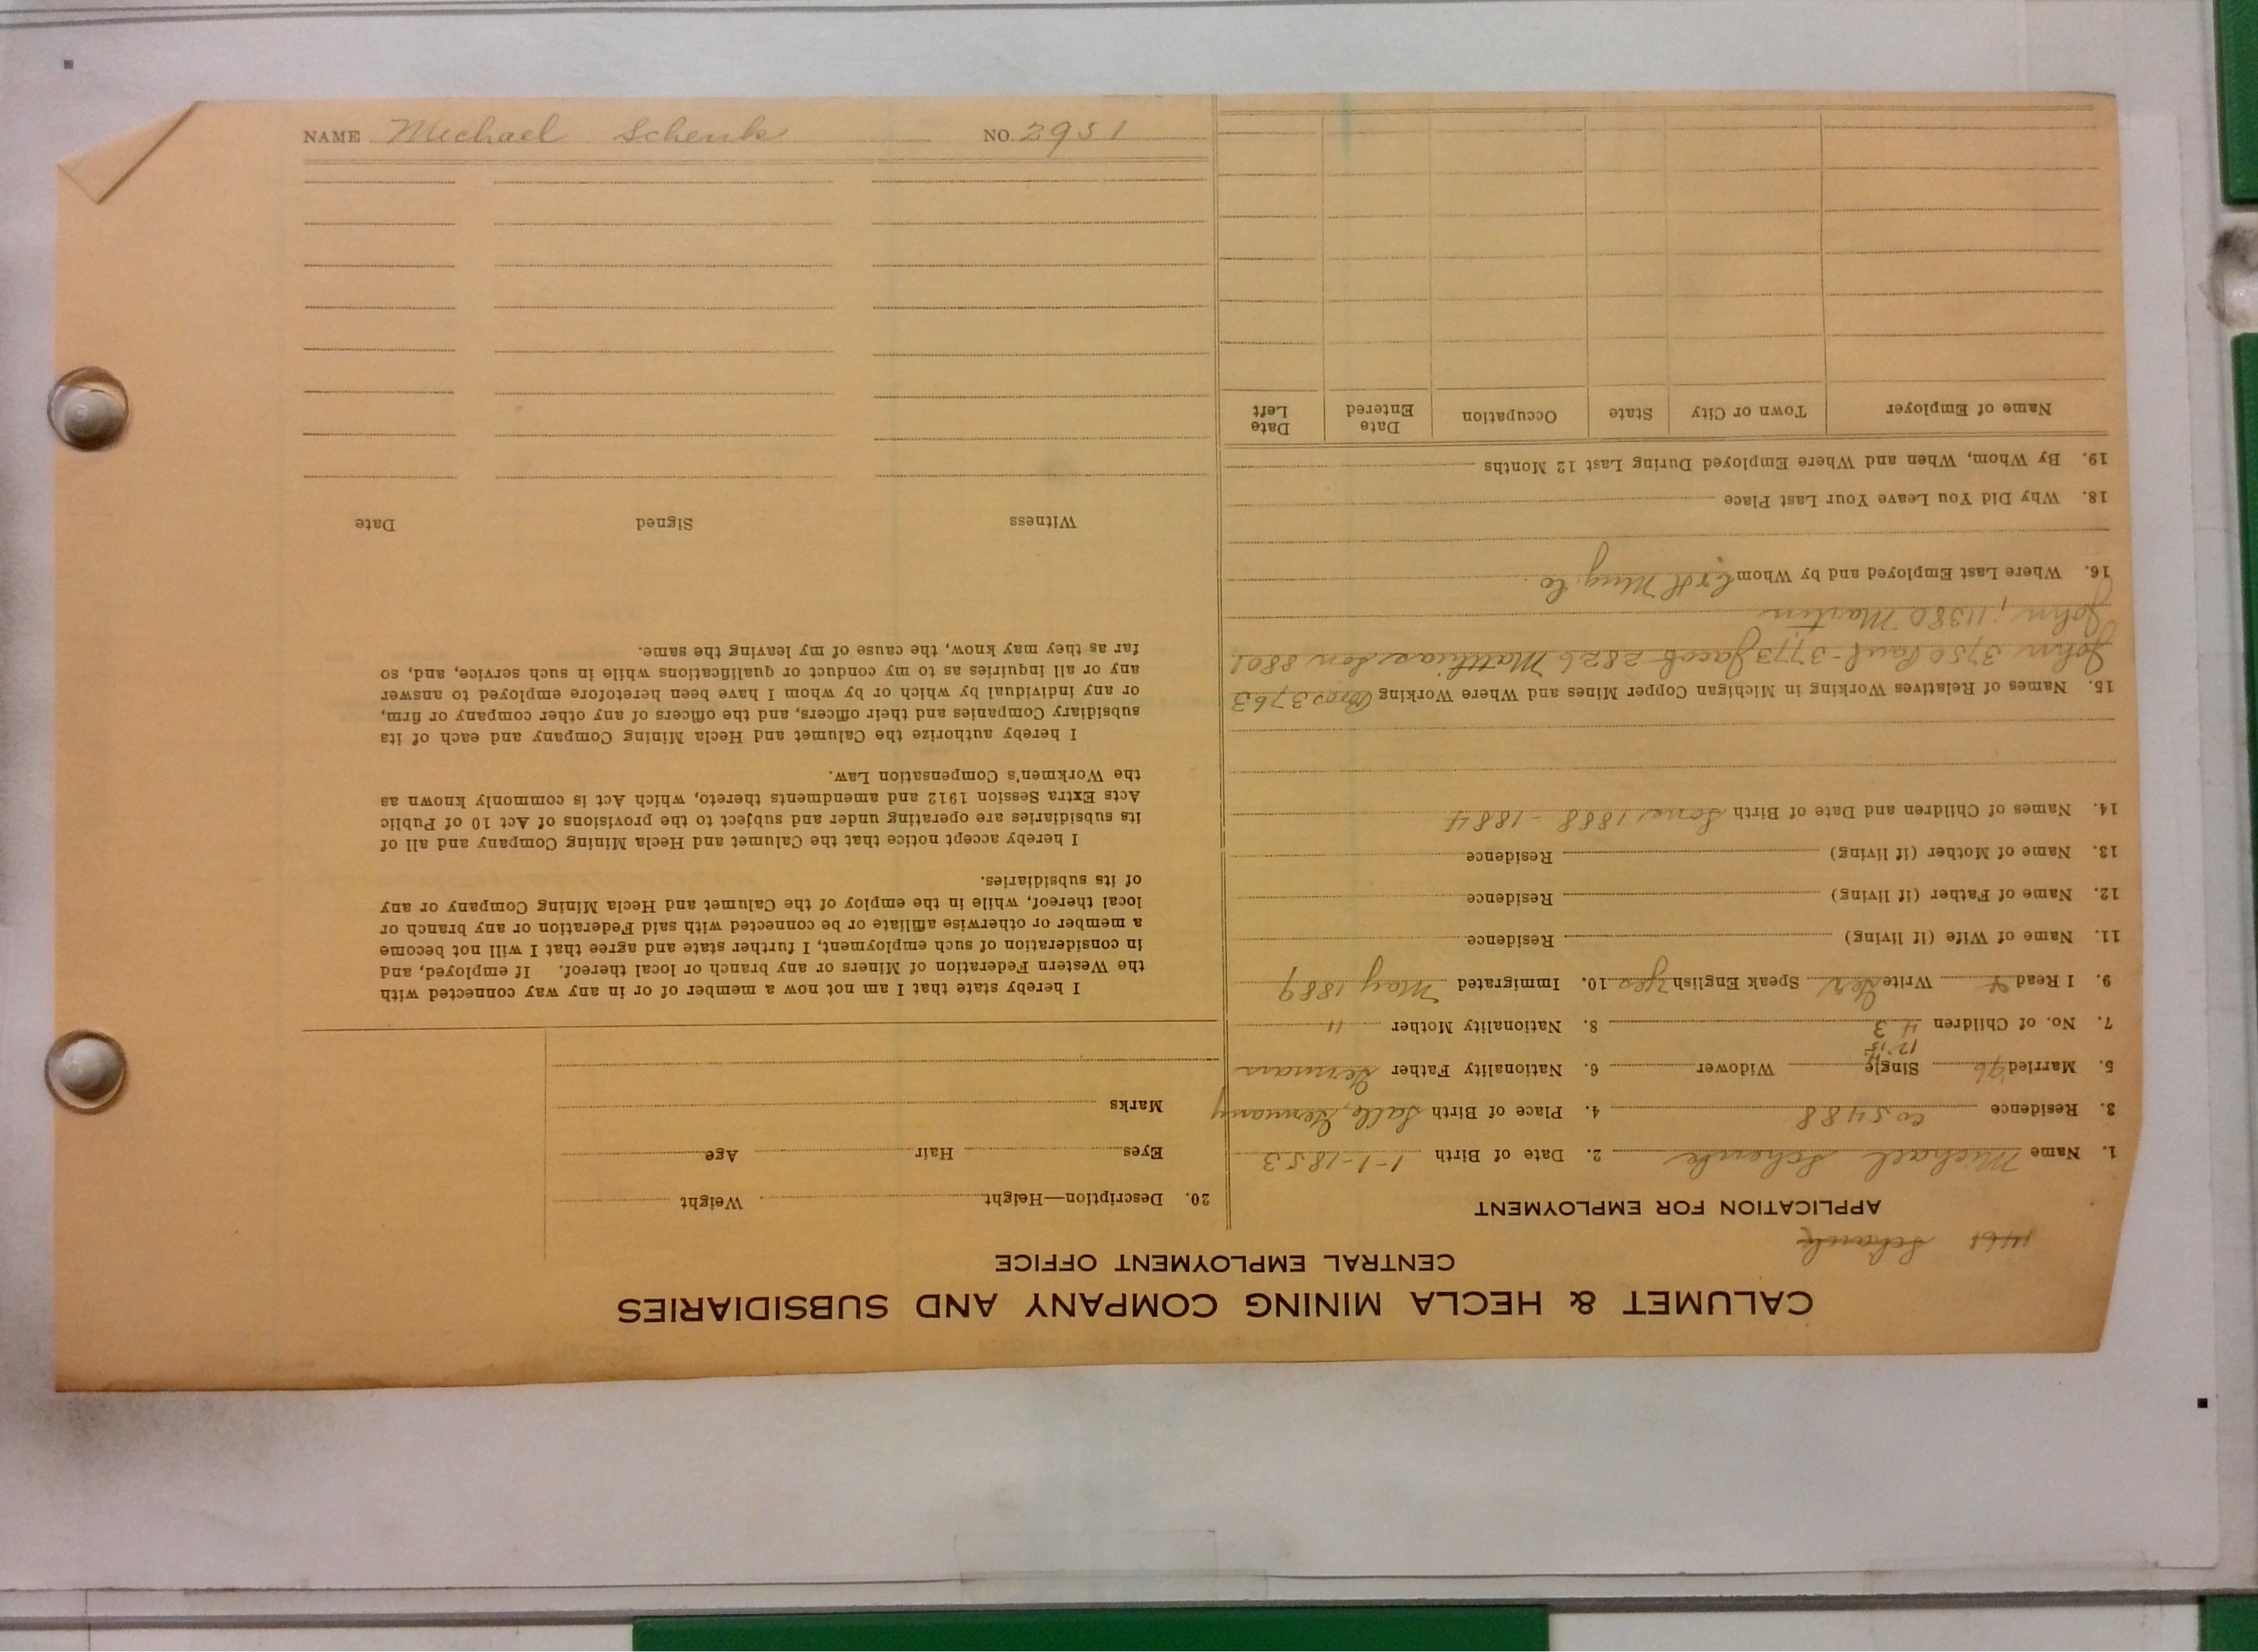 NAME Michael Schenk NO. 2951
CALUMET & HECLA MINING COMPANY AND SUBSIDIARIES
CENTRAL EMPLOYMENT OFFICE
1461 Schank
APPLICATION FOR EMPLOYMENT
1. Name Michael Schenk 2. Date of Birth 1-1-1853
3. Residence co 5488 4. Place of Birth Salle, Germany
5. Married 76 Single Widower 6. Nationality Father German
12 15
7. No. of Children 4 3 8. Nationality Mother "
9. I Read Write Ger Speak English yes 10. Immigrated May 1889
11. Name of Wife (if living) Residence
12. Name of Father (if living) Residence
13. Name of Mother (if living) Residence
14. Names of Children and Date of Birth Sons 1888 - 1884
15. Names of Relatives Working in Michigan Copper Mines and Where Working Bros 3763
John 3750 Paul - 3773 Jacob 2826 Matthias son 8801
John, 11380 Martin
16. Where Last Employed and by Whom C & H Mng Co.
18. Why Did You Leave Your Last Place
19. By Whom, When and Where Employed During Last 12 Months
Name of Employer Town or City State Occupation Date Entered Date Left
20. Description—Height Weight
Eyes Hair Age
Marks
I hereby state that I am not now a member of or in any way connected with
the Western Federation of Miners or any branch or local thereof. If employed, and
in consideration of such employment, I further state and agree that I will not become
a member or otherwise affiliate or be connected with said Federation or any branch or
local thereof, while in the employ of the Calumet and Hecla Mining Company or any
of its subsidiaries.
I hereby accept notice that the Calumet and Hecla Mining Company and all of
its subsidiaries are operating under and subject to the provisions of Act 10 of Public
Acts Extra Session 1912 and amendments thereto, which Act is commonly known as
the Workmen's Compensation Law.
I hereby authorize the Calumet and Hecla Mining Company and each of its
subsidiary Companies and their officers, and the officers of any other company or firm,
or any individual by which or by whom I have been heretofore employed to answer
any or all inquiries as to my conduct or qualifications while in such service, and, so
far as they may know, the cause of my leaving the same.
Witness Signed Date